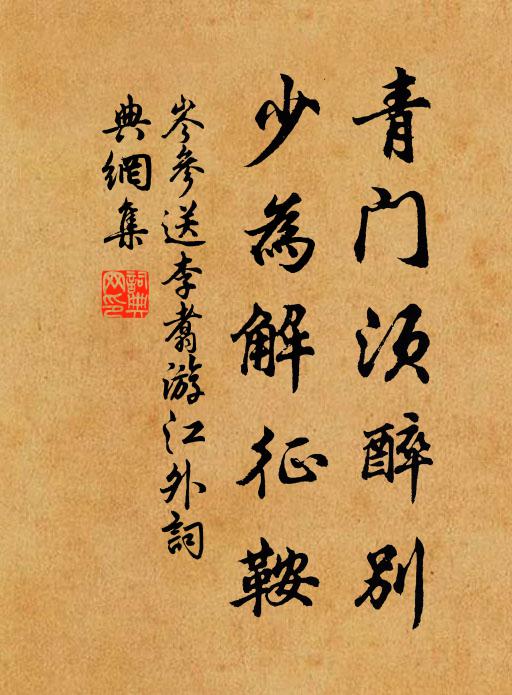 青门须醉别
少為解征鞍
岑參送李翥游江外詞
典網集
詞典網印